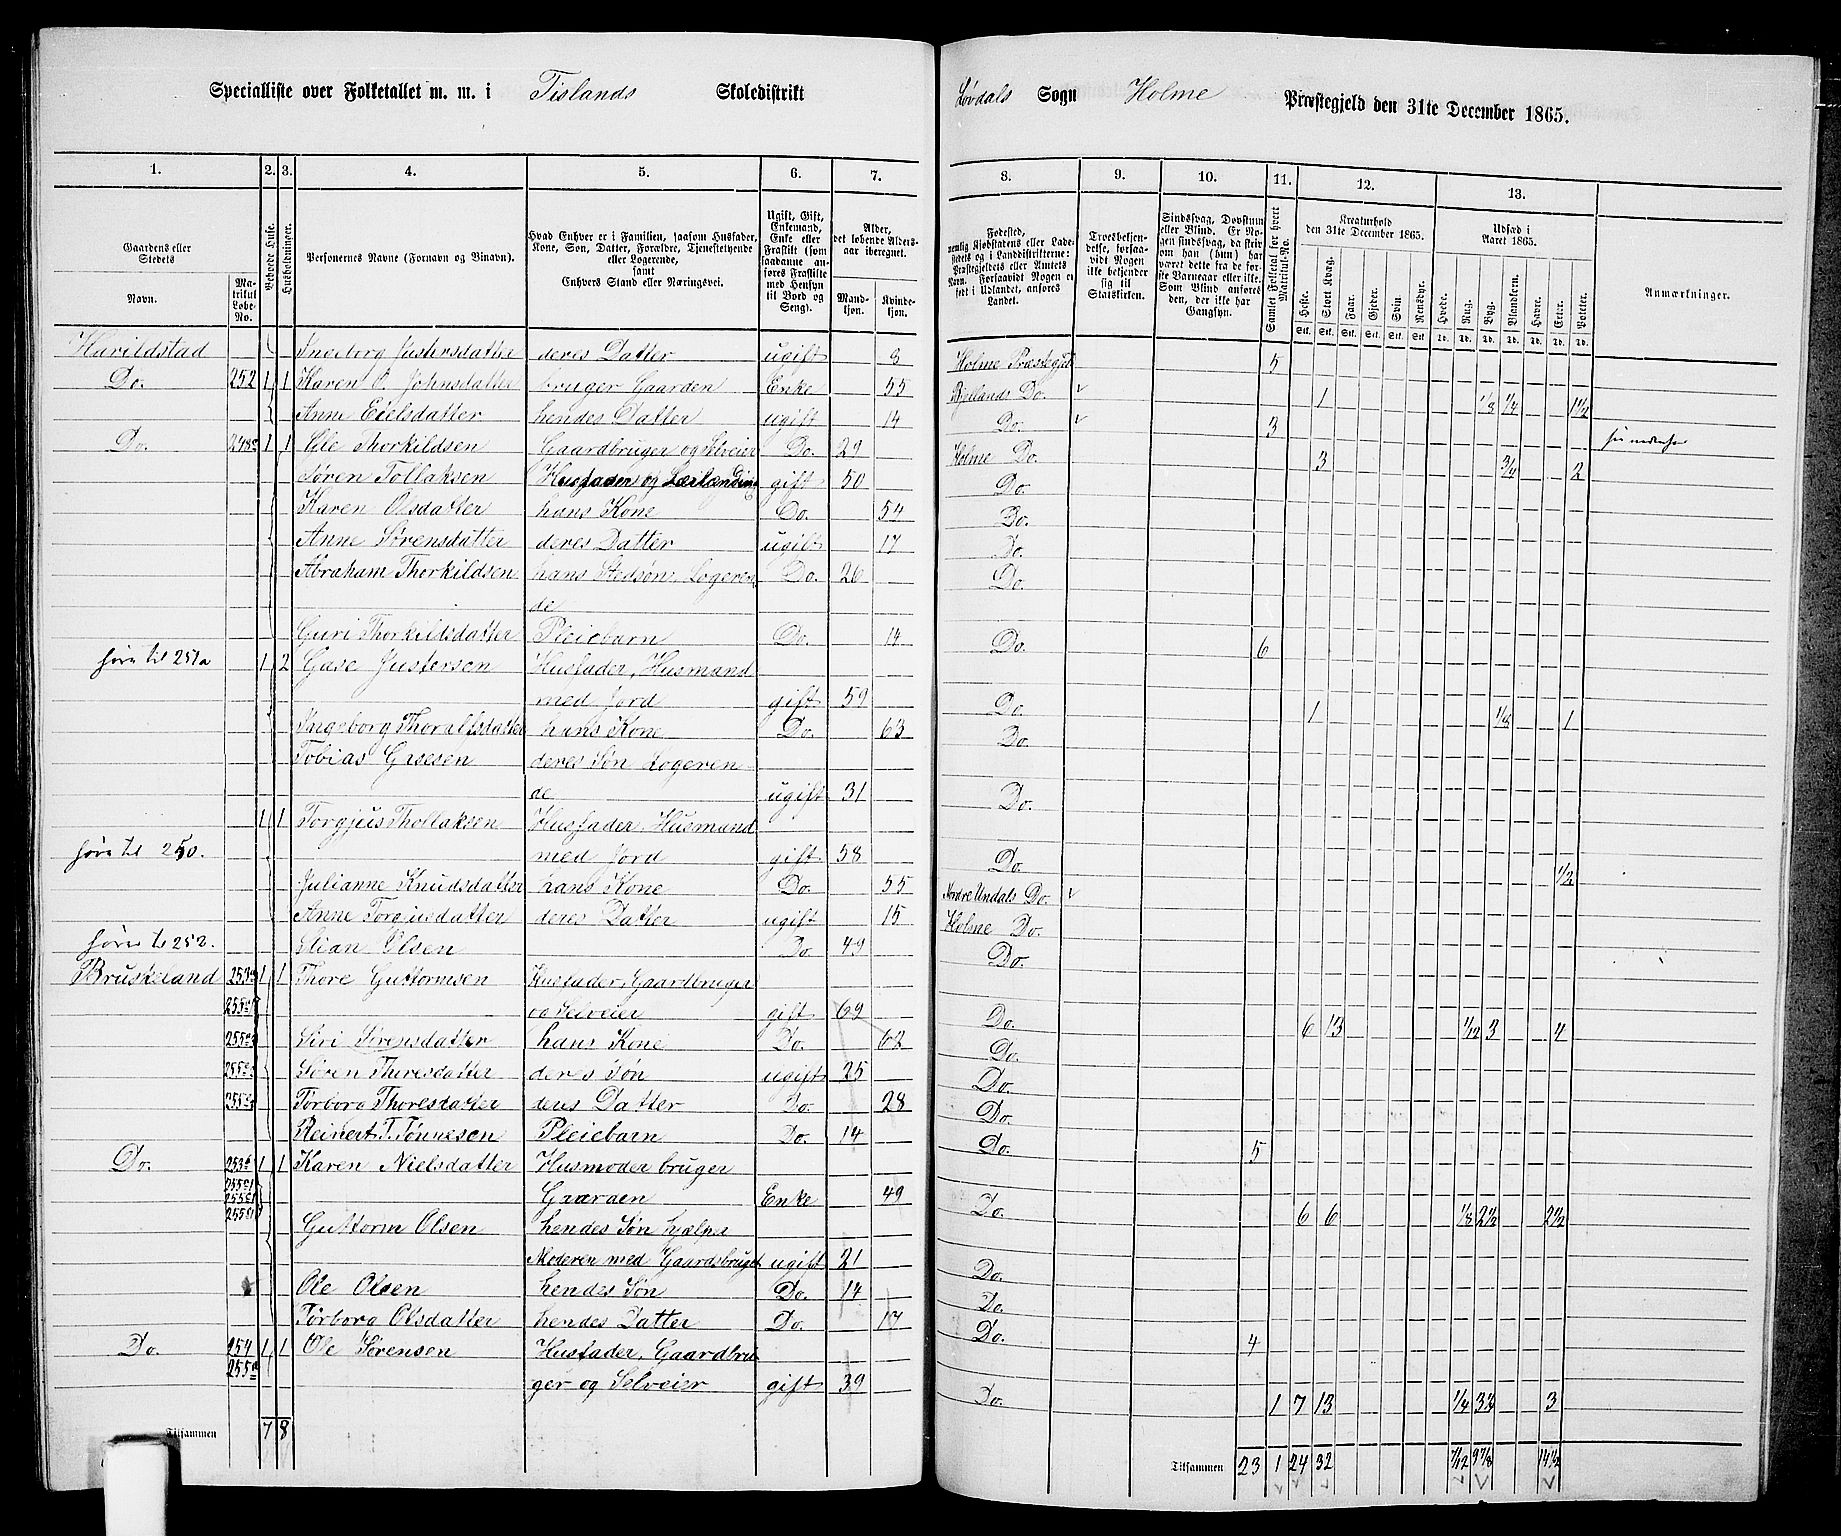 Specialliste over Folketallet m. m. i Tislands Skoledistrikt Løvdals Sogn Holme Præstegjeld den 31te December 1865.
1. 2. 3. 4. 5. 6. 7. 8. 9. 10. 11. 12. 13.
Gaardens eller Stedets Navn. Matrikul Løbe-No. Beboede Huse. Husholdninger. Personernes Navne (Fornavn og Binavn). Hvad Enhver er i Familien, saasom Husfader, Kone, Søn, Datter, Forældre, Tjenestetyende eller Logerende, samt Enhvers Stand eller Næringsvei. Ugift, Gift, Enkemand, Enke eller Fraskilt (som saadanne anføres Fraskilte med Hensyn til Bord og Seng). Alder, det løbende Aldersaar iberegnet. Mandkjøn. Kvindekjøn.
Kreaturhold den 31te December 1865. Udsæd i Aaret 1865. Anmærkninger.
Heste. Stort Kvæg. Faar. Gjeder. Svin. Rensdyr. Hvede. Rug. Byg. Blandkorn. Havre. Erter. Poteter.
Harildstad Ingeborg Justersdatter deres Datter ugift 8 Holme Præstegjd 5
Do. 252 1 1 Karen O. Johnsdatter bruger Gaarden Enke 55 Bjellands Do. 1 1/8 1/4 1 1/2
Anne Eielsdatter hendes Datter ugift 14 Do. 3
Do. 1 1 Ole Thorkildsen Gaardbruger og Selveier Do. 29 Holme Do. 3 3/4 2
Søren Tollaksen Husfader og gift 50 Do.
Karen Olsdatter hans Kone Do. 54 Do.
Anne Sørensdatter deres Datter ugift 17 Do.
Abraham Thorkildsen hans Stedsøn, Logeren Do. 26 Do.
de
Guri Thorkildsdatter Pleiebarn Do. 14 Do. 6
hører til 251a 1 2 Gase Justersen Husfader, Husmand
med Jord gift 59 Do. 1 1/8 1
Ingeborg Thoralfsdatter hans Kone Do. 63 Do.
Tobias Gasesen deres Søn Logeren
de ugift 31 Do.
1 1 Torgjus Thollaksen Husfader, Husmand
hører til 250. med Jord gift 58 Do. 1/2
Julianne Knudsdatter hans Kone Do. 55 Nordre Undals Do.
Anne Torgjusdatter deres Datter ugift 15 Holme Do.
hører til 252. Stian Olsen Do. 49 Do.
Bruskeland 1 1 Thore Guttormsen Husfader, Gaardbruger
og Selveier gift 69 Do. 6 13 1/12 3 4
Siri Sørensdatter hans Kone Do. 62 Do.
Søren Thoresdatter deres Søn ugift 25 Do.
Torborg Thoresdatter deres Datter Do. 28 Do.
Reinert T. Tønnesen Pleiebarn Do. 14 Do. 5
Do. 1 1 Karen Nielsdatter Husmoder bruger
Gaarden Enke 49 Do. 6 6 1/8 2 1/2 2 1/2
Guttorm Olsen hendes Søn hjælper
Moderen med Gaardsbruget ugift 21 Do.
Ole Olsen hendes Søn Do. 14 Do.
Torborg Olsdatter hendes Datter Do. 17 Do. 4
Do. 254 1 1 Ole Sørensen Husfader, Gaardbru
ger og Selveier gift 39 Do. 1 7 13 1/4 3 3
Tilsammen 7 8 Tilsammen 23 1 24 32 7/12 9 7/8 14 1/2